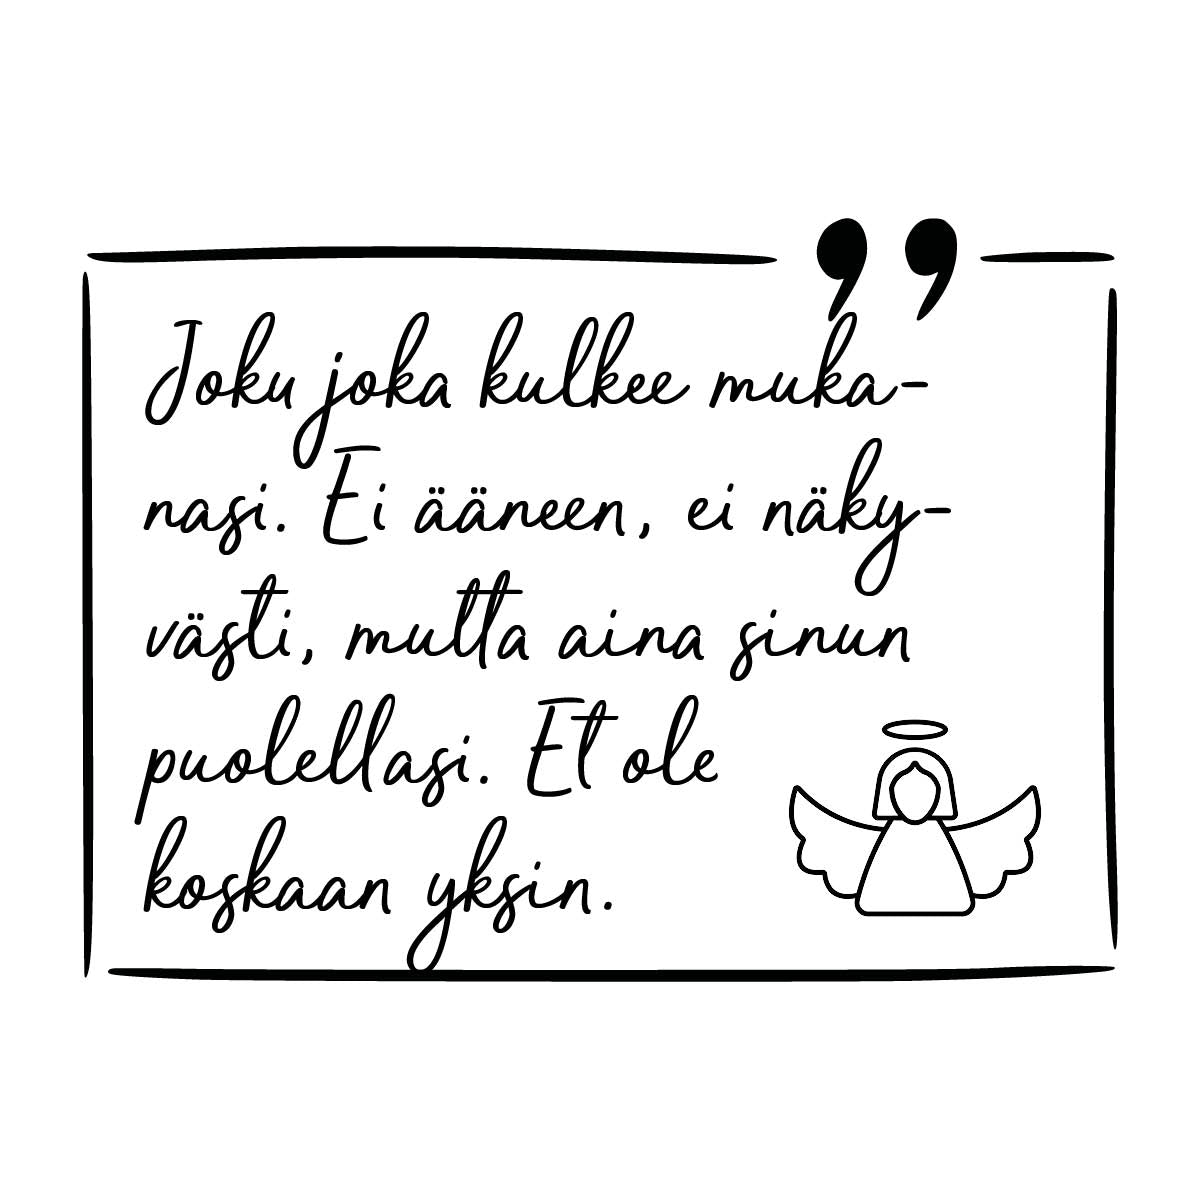 ”
Joku joka kulkee muka-
nasi. Ei ääneen, ei näky-
västi, mutta aina sinun
puolellasi. Et ole
koskaan yksin.